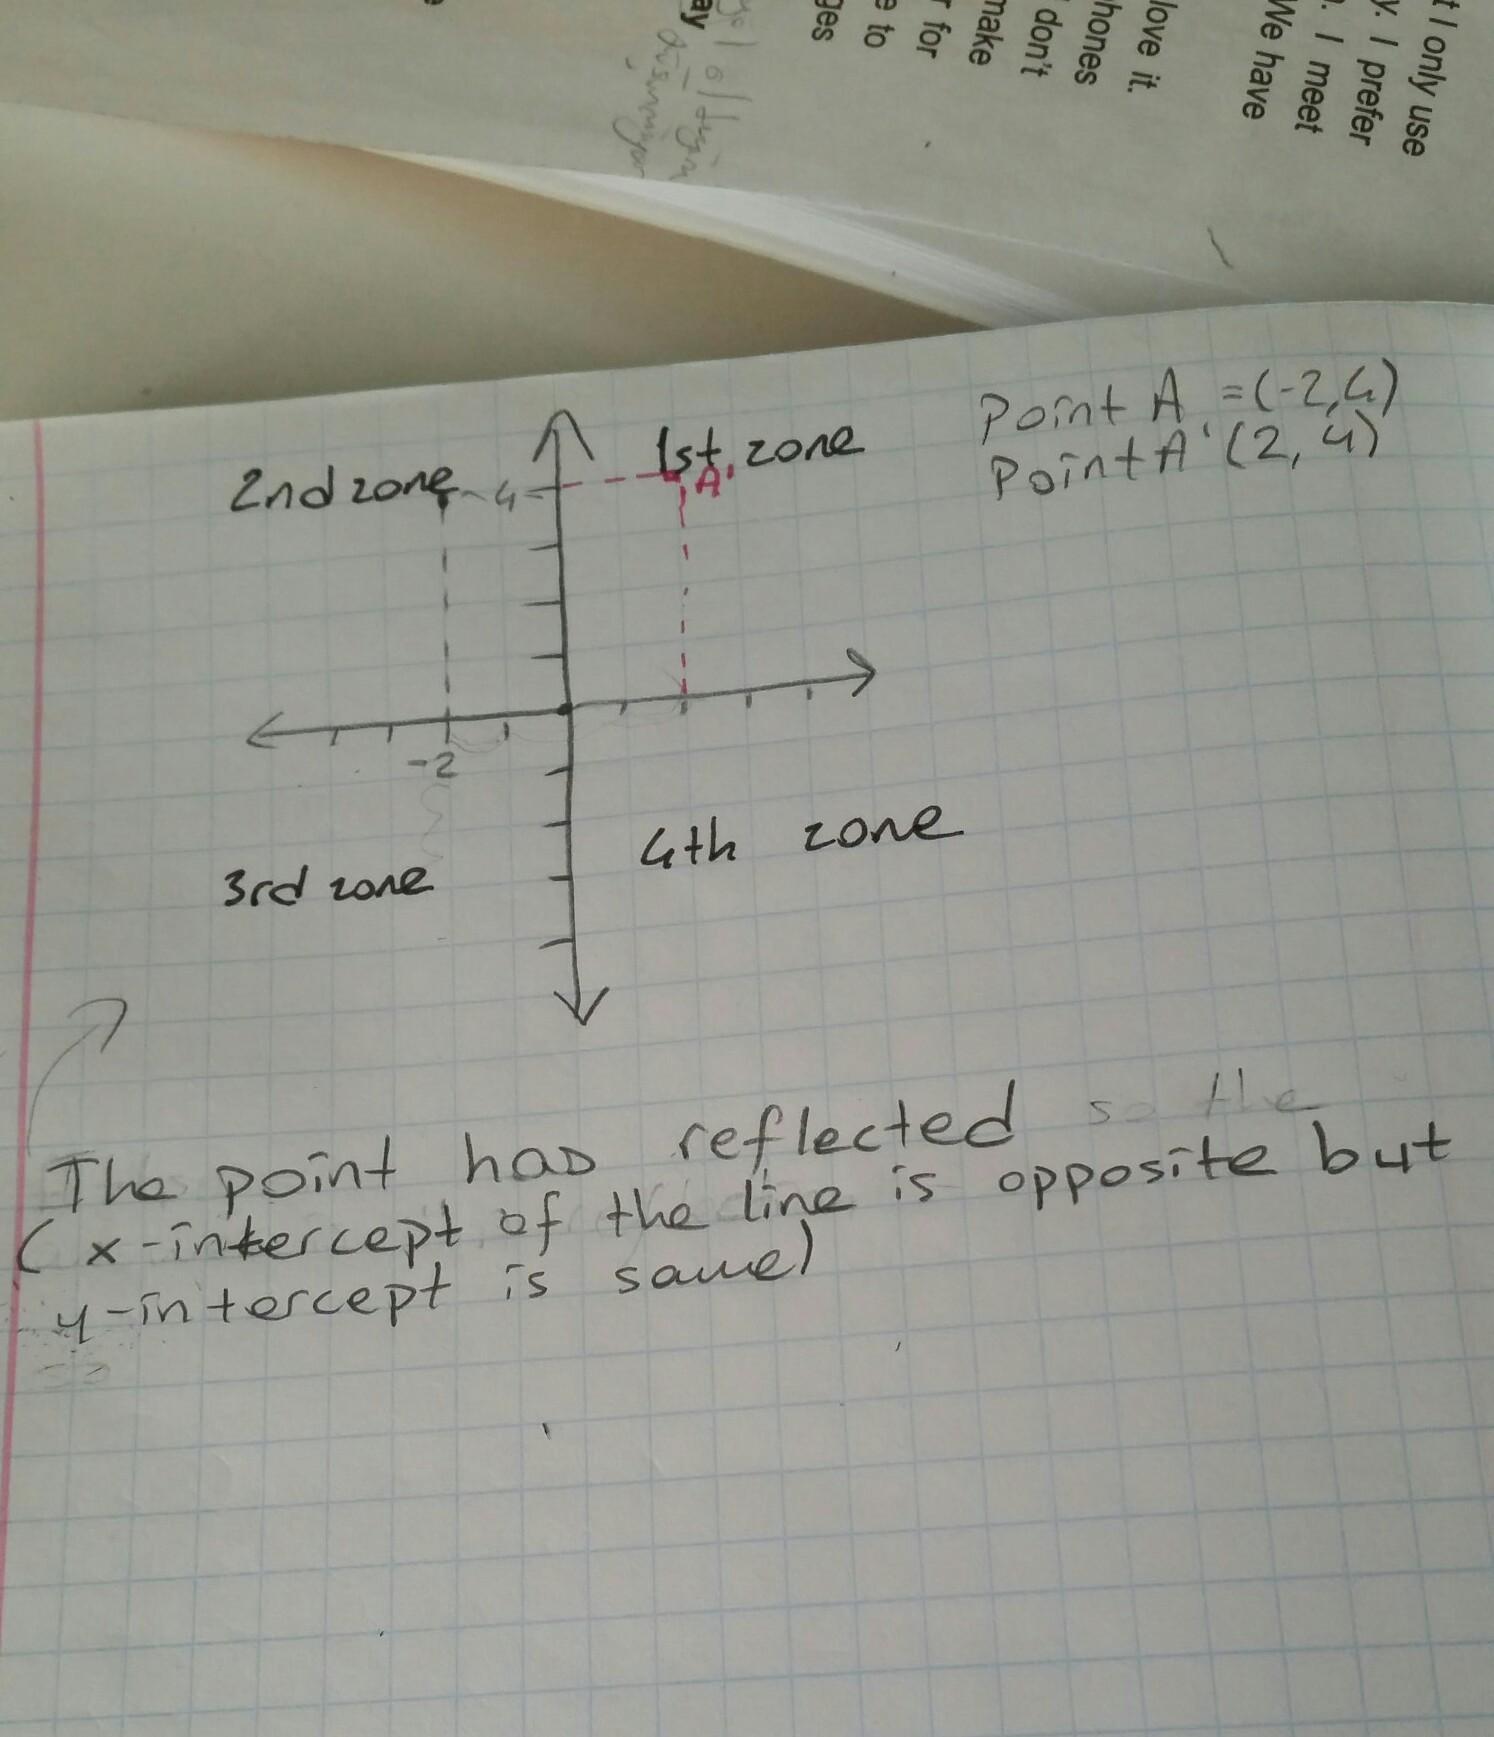 t I only use
y. I prefer
. I meet
We have
love it.
hones
don't
make
r for
e to
ges
ay
Point A = (-2,4)
Point A' (2, 4)
2nd zone
1st zone
4
A'
-2
3rd zone
4th zone
The point has reflected so the
( x-intercept of the line is opposite but
y-intercept is same)